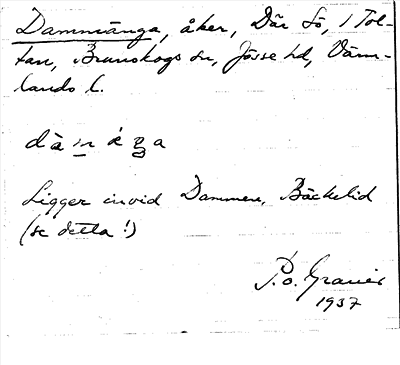 Dammänga, åker, Där Sö, 1 Tol-
tan, Brunskogs sn, Jösse hd, Värm-
lands l.
Ligger invid Dammen, Bäckelid
(se detta!)
P.o. Graner
1937